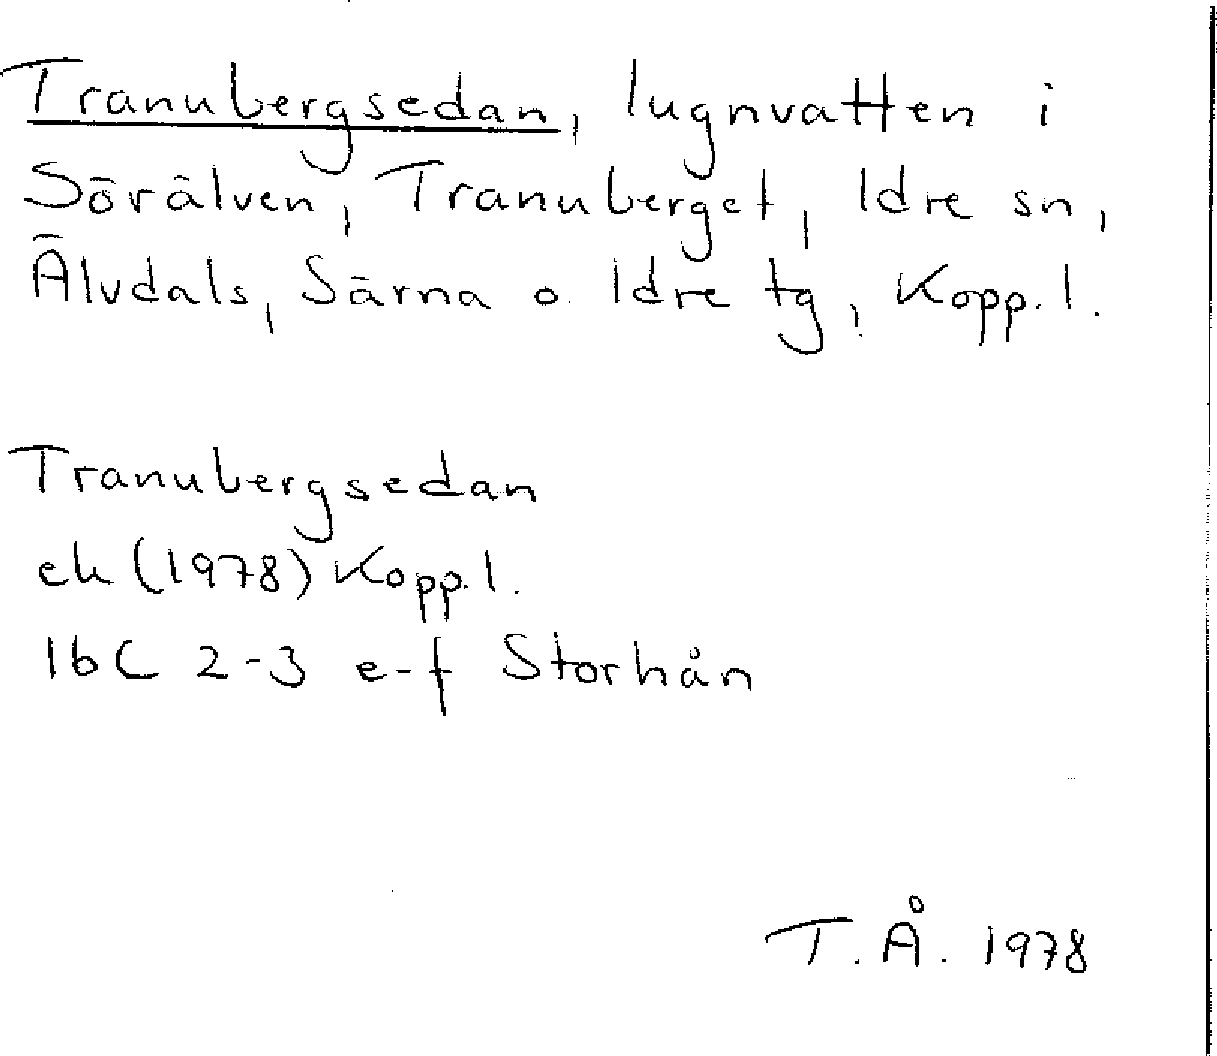 Tranubergsedan, lugnvatten i
Sörälven, Tranuberget, Idre sn,
Älvdals, Särna o. Idre tg, Kopp. l.
Tranubergsedan
ek (1978) Kopp. l.
16C 2-3 e-f Storhån
T. Å. 1978